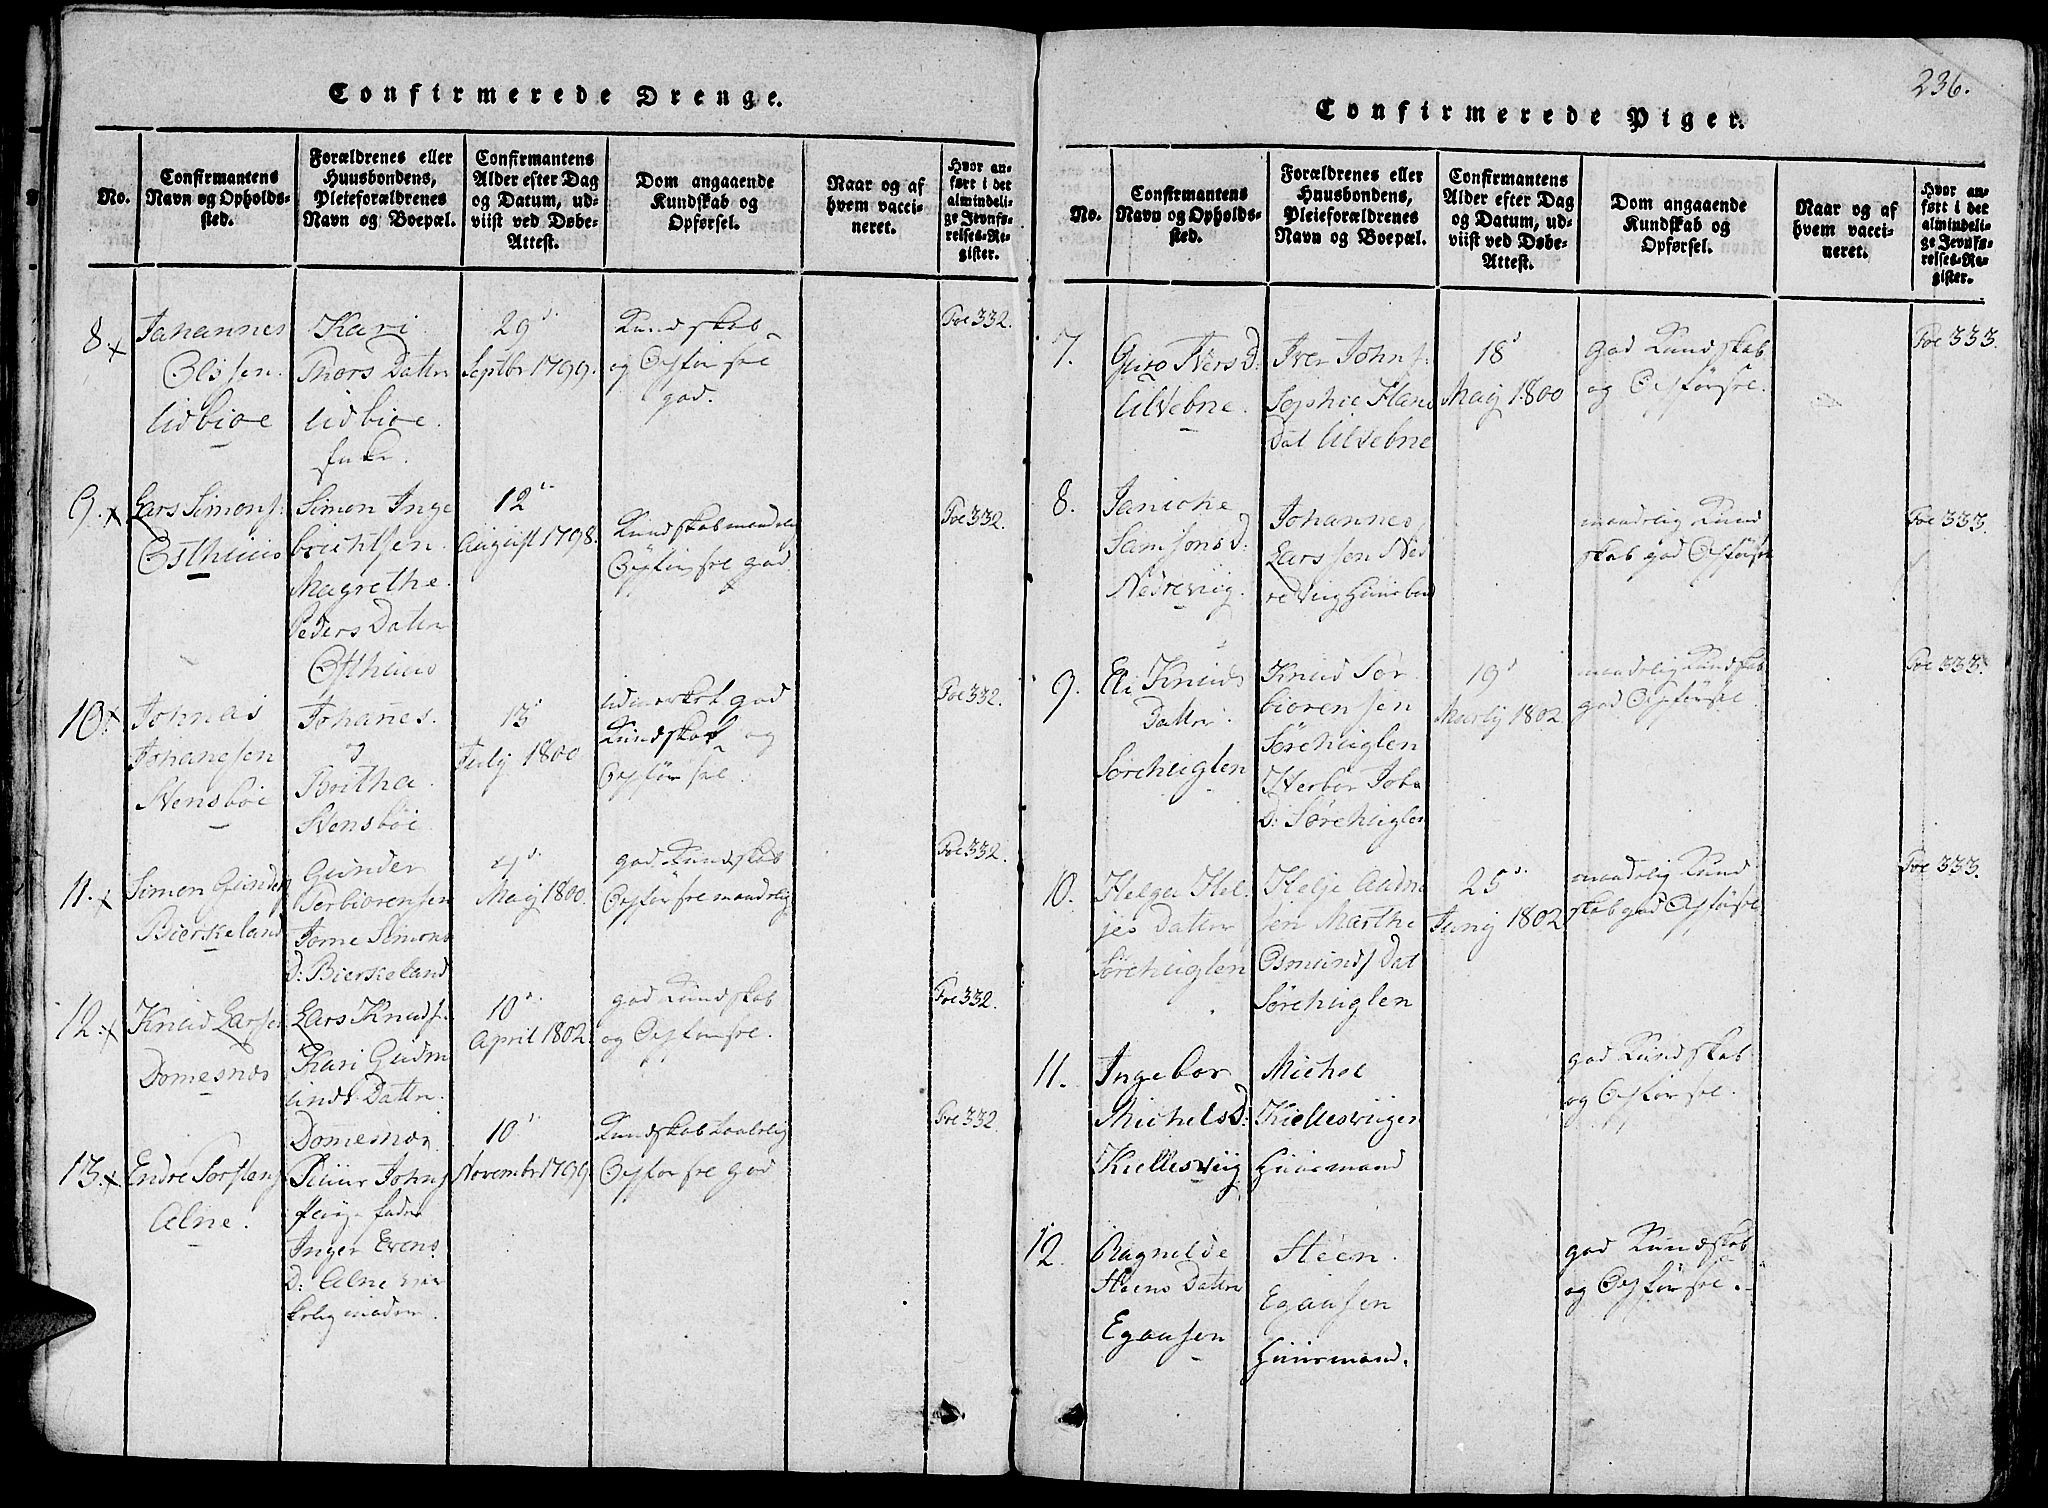 Confirmerede Drenge.
No.
Confirmantens
Navn og Opholds-
sted.
Forældrenes eller
Huusbondens,
Pleieforældrenes
Navn og Boepæl.
Confirmantens
Alder efter Dag
og Datum, ud-
viist ved Døbe-
Attest.
Dom angaaende
Kundskab og
Opførsel.
Naar og af
hvem vacci-
neret.
Hvor an-
ført i det
almindeli-
ge Jevnfø-
relses-Re-
gister.
8.
Johannes
Olssen.
Udbioe
Kari
Thors Datter
Udbioe.
29
Septbr 1799.
Kundskab
og Opførsel
god.
Foe 332.
9.
Lars Simons.
Østhuus
Simon Inge
brichtsen.
Magrethe
Peders Datter
Østhuus
12
August 1798.
Kundskab maadelig
Opførsel god.
Foe 332.
10.
Johnas
Johanesen
Stensböe
Johanes.
Britha
Stensböe
July 1800
udmerket god
Kundskab og
Opførsel.
Foe 332.
11.
Simon Gunders
Bierkeland
Gunder
Torbiorensen
Simons
D: Bierkeland
4
May 1800.
god Kundskab
Opførsel maadelig
Foe 332.
12.
Knud Larsen
Domesnes
Lars Knuds.
Kari Gudm
unds Datter.
Domesnes
10
April 1802.
god Kundskab
og Opførsel.
Foe 332.
13.
Endre Torstens
Alne.
Johns
Inger Evens
D: Alne
10
November 1799.
Kundskab
Opførsel god
Foe 332.
236.
Confirmerede Piger.
No.
Confirmantens
Navn og Opholds-
sted.
Forældrenes eller
Huusbondens,
Pleieforældrenes
Navn og Boepæl.
Confirmantens
Alder efter Dag
og Datum, ud-
viist ved Døbe-
Attest.
Dom angaaende
Kundskab og
Opførsel.
Naar og af
hvem vacci-
neret.
Hvor an-
ført i det
almindeli-
ge Jevnfø-
relses-Re-
gister.
7.
Guro Ivers D:
Ulvebne.
Iver Johns.
Sophie Hans
Dat Ulvebne
18
May 1800
god Kundskab
og Opførsel.
Foe 333.
8.
Janicke
Samsons D:
Nedreviig.
Johannes
Larssen Ned
reviig Huusbond
maadelig Kund
skab god Opførsel
Foe 333.
9.
Eli Knuds
Datter.
Sörehuglen
Knud Tor
biorensen
Sörehuglen
Herbor Joh
D: Sörehuglen
19
Martij 1802.
maadelig Kundskab
god Opførsel.
Foe 333.
10.
Helga Hel
jes Datter
Sörehuglen
Helje Aadne
sen Marthe
Osmunds Dat
Sörehuglen
25
Junij 1802
maadelig Kund
skab god Opførsel.
Foe 333.
11.
Ingebor
Michels D:
Kiellesviig
Michel
Kiellesviigen
Huusmand
god Kundskab
og Opførsel.
12.
Ragnilde
Steens Datter
Egausen
Steen.
Egausen
Huusmand.
god Kundskab
og Opførsel.